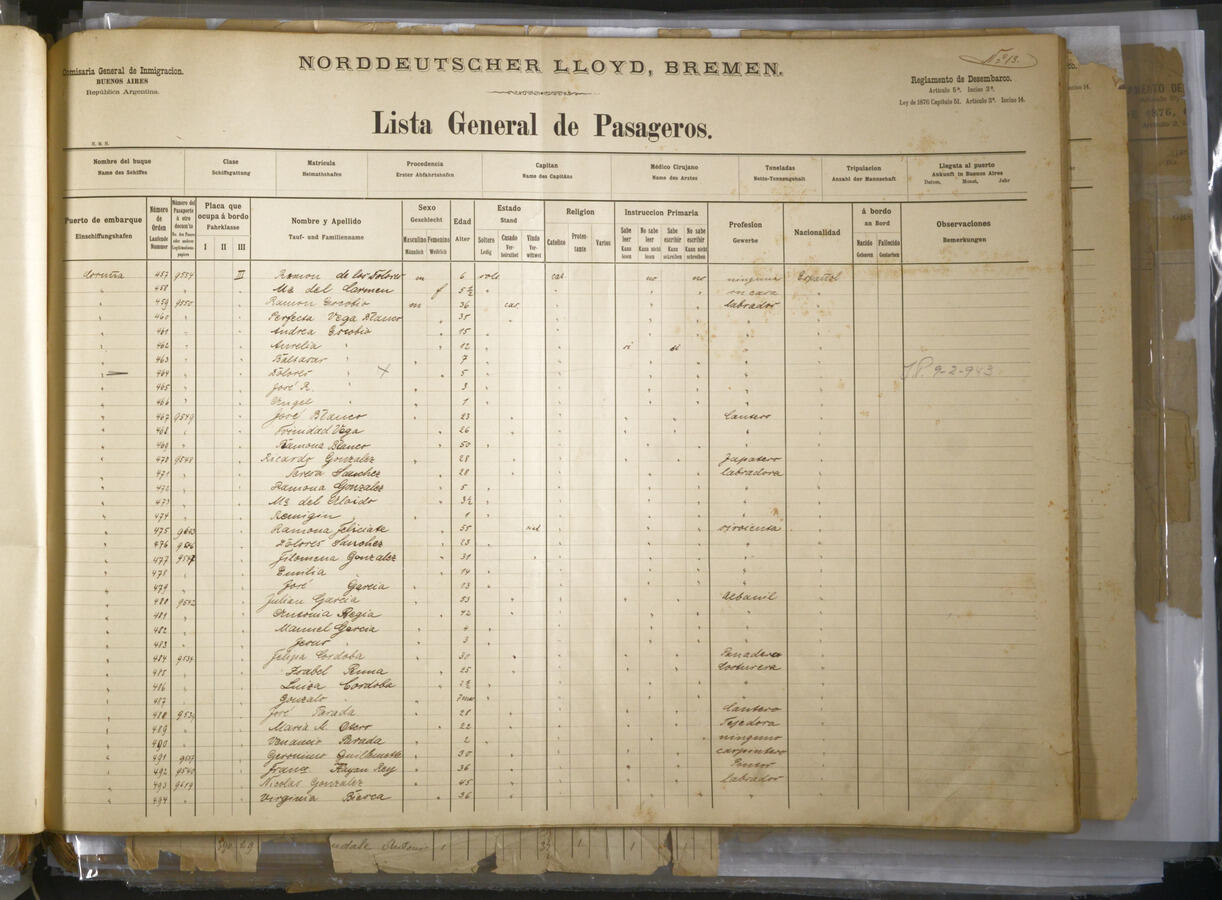 Comisaria General de Inmigracion.
BUENOS AIRES
República Argentina.
NORDDEUTSCHER LLOYD, BREMEN.
Nº 13.
Reglamento de Desembarco.
Artículo 5º. Inciso 2º.
Ley de 1876 Capítulo 51. Artículo 2º. Inciso 14.
Lista General de Pasageros.
Nombre del buque
Name des Schiffes
Clase
Schiffsgattung
Matrícula
Heimathshafen
Procedencia
Erster Abfahrtshafen
Capitan
Name des Capitäns
Médico Cirujano
Name des Arztes
Toneladas
Netto-Tonnengehalt
Tripulacion
Anzahl der Mannschaft
Llegata al puerto
Ankunft in Buenos Aires
Datum, Monat, Jahr
Puerto de embarque
Einschiffungshafen
Número de Orden
Laufende Nummer
Número del Pasaporte
Placa que ocupa á bordo
Fahrklasse
I II III
Nombre y Apellido
Tauf- und Familienname
Sexo
Geschlecht
Masculino Femenino
Männlich Weiblich
Edad
Alter
Estado
Stand
Soltero Casado Viudo
Ledig Verheirathet Verwittwet
Religion
Catolino Protestante Varios
Instruccion Primaria
Sabe leer No sabe leer Sabe escribir No sabe escribir
Kann lesen Kann nicht lesen Kann schreiben Kann nicht schreiben
Profesion
Gewerbe
Nacionalidad
á bordo
an Bord
Nacido Fallecido
Geboren Gestorben
Observaciones
Bemerkungen
Coruña 457 9554 III Ramon de los Dolores m 6 solt cat no no ninguna Español
458 Mª del Carmen f 5½ en casa
459 9550 Ramon Escobio m 36 cas labrador
460 Perfecta Vega Blanco 35
461 Andrea Escobio 15
462 Aurelia 12 si si
463 Baltasar 7
464 Dolores 5 9-2-943
465 José R. 3
466 Angel 1
467 9549 José Blanco 23 Cantero
468 Trinidad Vega 26
469 Ramona Blanco 50
470 9548 Ricardo Gonzalez 28 Zapatero
471 Teresa Sanchez 28 labradora
472 Ramona Gonzalez 5
473 Mª del 3½
474 Remigin 1
475 Ramona Feliciate 55 viud sirvienta
476 Dolores Sanchez 23
477 9547 Filomena Gonzalez 31
478 Emilia 14
479 José Garcia 13
480 9542 Julian Garcia 53 Albanil
481 Antonia Regia 42
482 Manuel Garcia 4
483 Jesus 3
484 9534 Felipa Cordoba 30 Panadero
485 Isabel 25 Costurera
486 Luisa Cordoba 2½
487 Gonzalo
488 José Parada 28 Cantero
489 Maria A. Otero 22 Tejedora
490 Venancio Parada 2 ninguno
491 Geronimo 30 carpintero
492 9540 Franc Rayan Rey 36
493 9519 Nicolas Gonzalez 45 labrador
494 Virginia Bierca 36